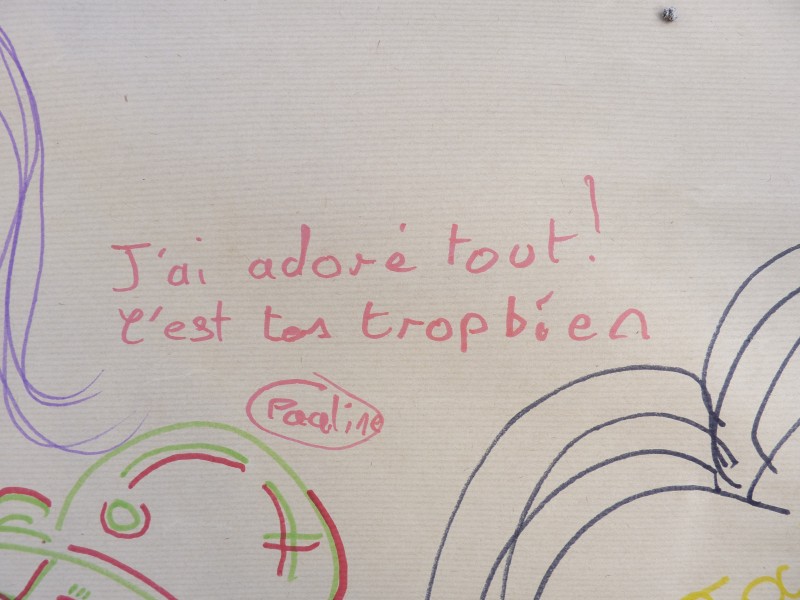 J'ai adoré tout!
C'est tos trop bien
Pauline